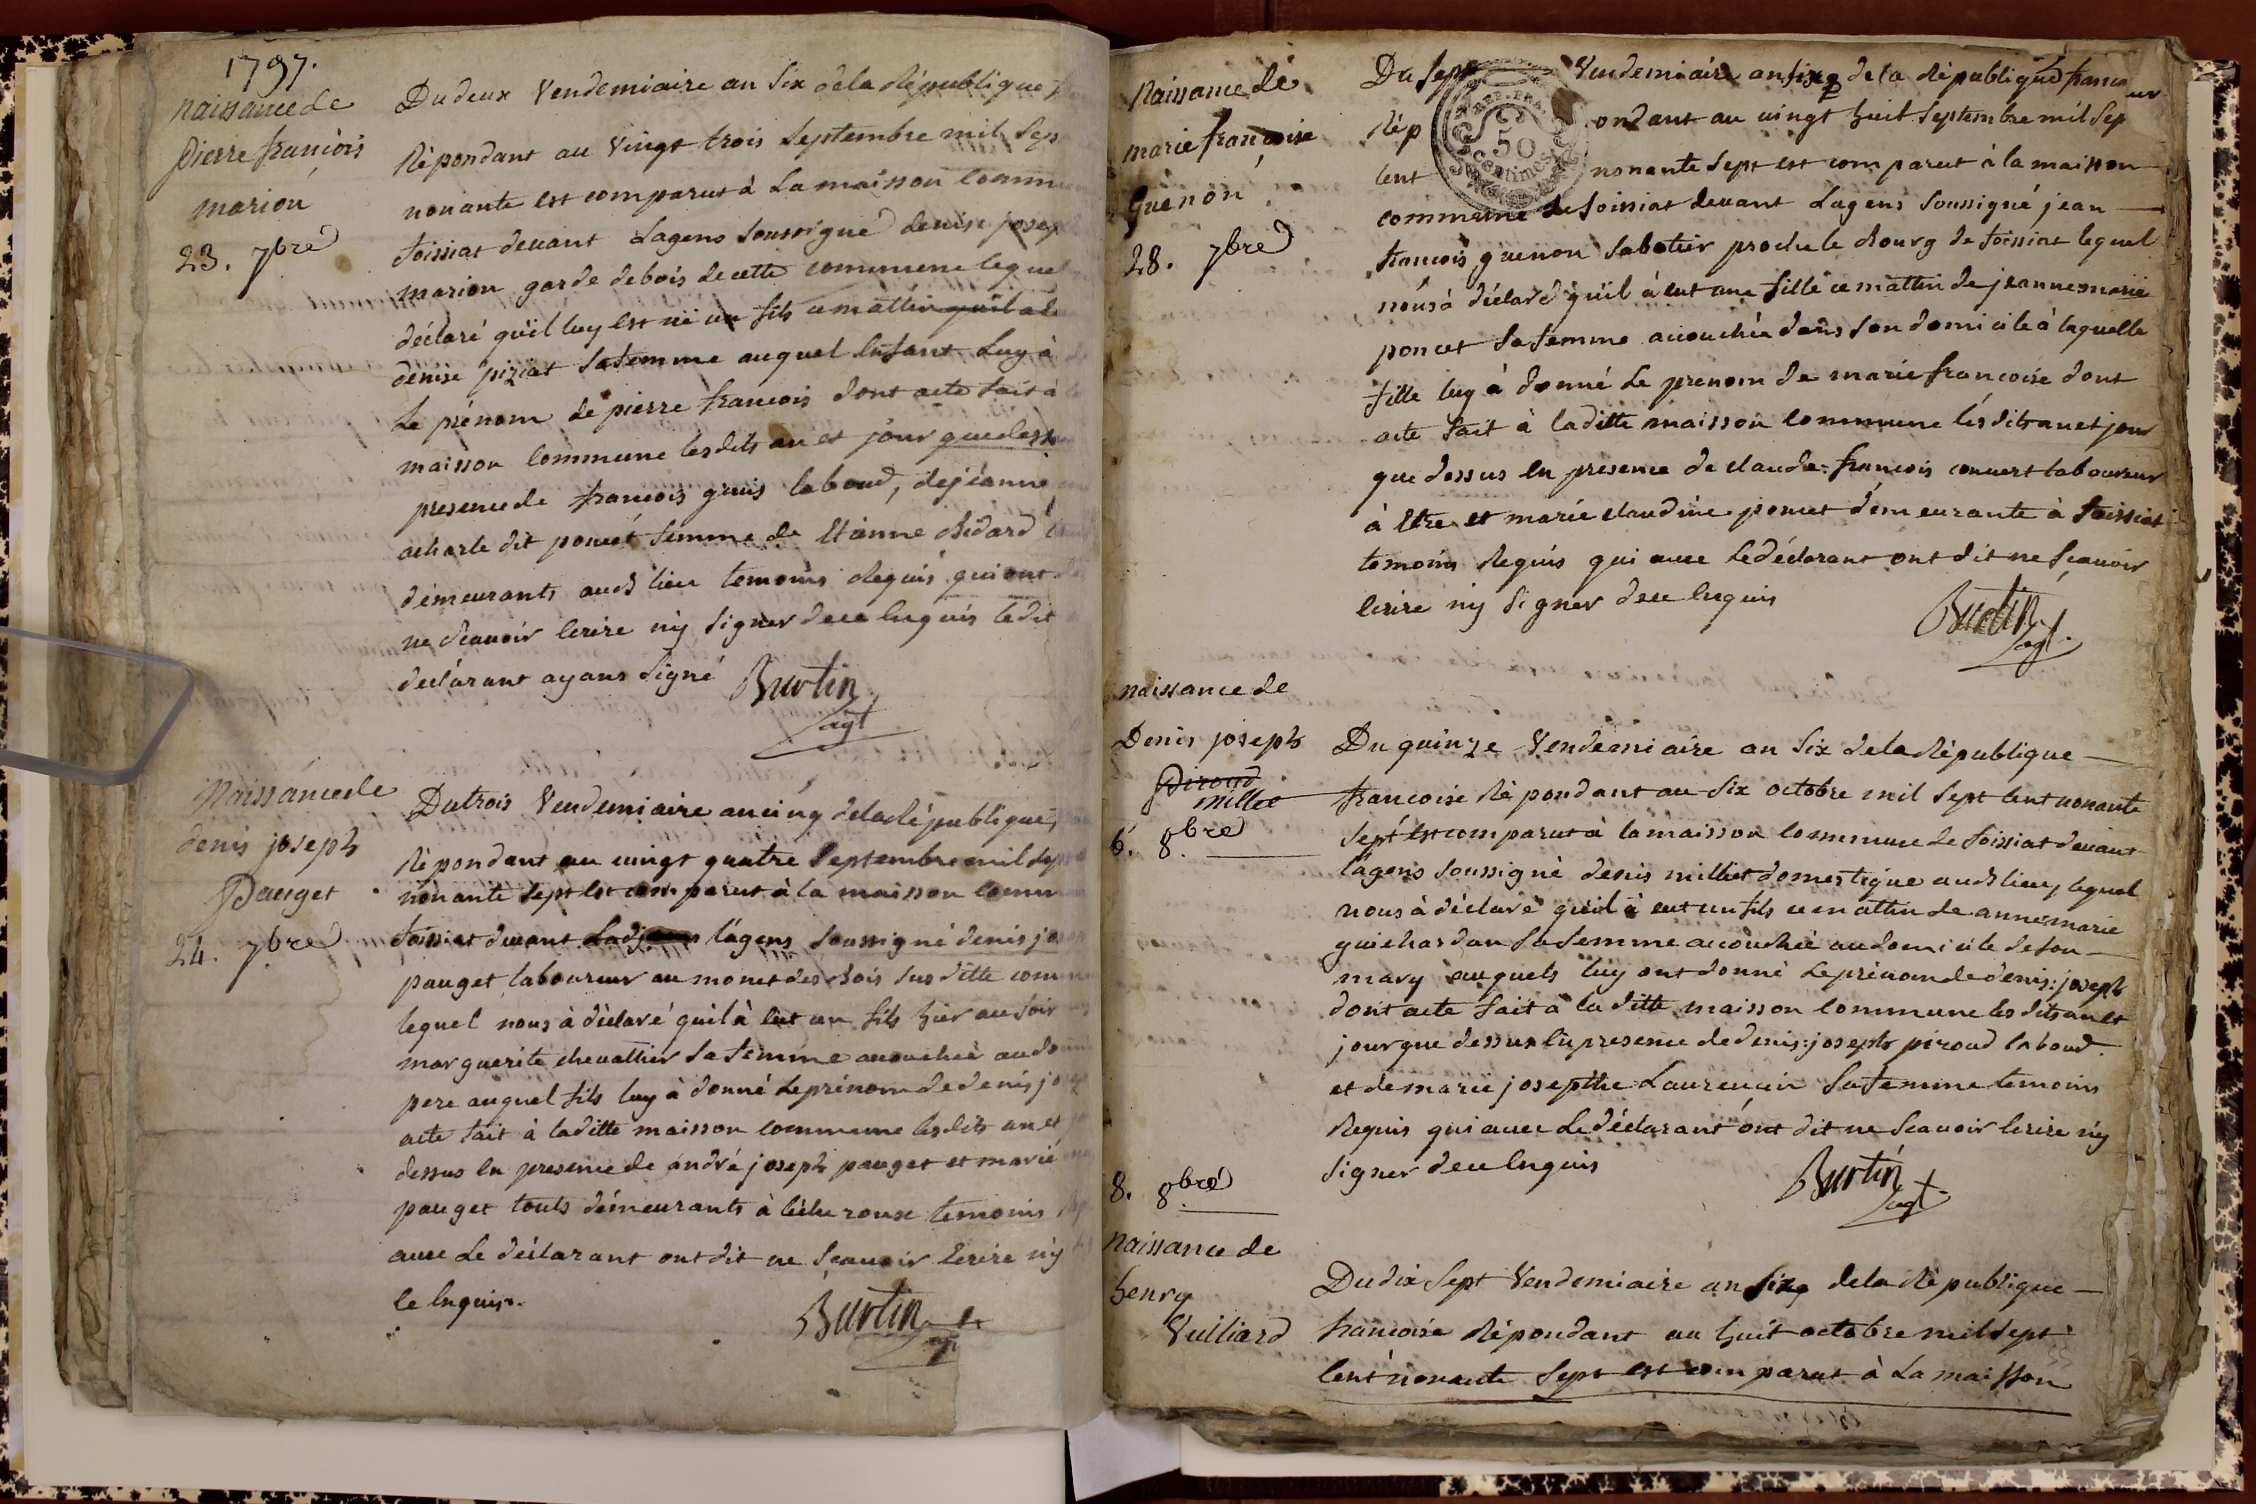 1797.
naissance de
pierre francois
marion
23. 7bre
Du deux Vendemiaire an Six dela République
Répondant au Vingt trois Septembre mil Sep
nonante est comparut à La maison Commu
foissiat devant Lagens Soussigné denis josep
marion garde de bois de cette commune lequel
déclaré qu'il luy est né un fils ce mattin qu'il a
denise piziat Sa femme auquel Enfant Luy à
Le prénom de pierre francois dont acte fait à
maison Commune lesdits an et jour que dess
presence de francois labourd, de jéanne
acharle dit poncet femme de Etienne
démeurants aud lieu temoins Requis qui ont
ne Scavoir Ecrire ny Signer de ce Enquis le dit
declarant ayant Signé
Burtin
agt
Naissance de
denis joseph
Pauget
24. 7bre
Du trois Vendemiaire an cinq dela République
Répondant au vingt quatre Septembre mil Sep
nonante Sept Est comparut à la maison Comm
foissiat devant Lagens Soussigné denis jo
pauget laboureur au monet des bois Sus ditte com
lequel nous à déclaré quil à Eut un fils hier au Soir
marguerite chevallier Sa femme accouchée au do
pere auquel fils luy à donné Le prénom de denis jo
acte fait à laditte maison commune lesdits an et
dessus En presence de andré joseph pauget et marie
pauget touts démeurants à temoins
avec Le déclarant ont dit ne Scavoir Ecrire ny
ce Enquis.
Burtin
Naissance de
marie francoise
Guenon
28. 7bre
Du Sept Vendemiaire an Six dela République franco
Rép ondant au vingt huit Septembre mil Sep
Cent nonante Sept est comparut à la maison
commune de foissiat devant Lagens Soussigné jean
francois guenon Sabotier proche le Bourg de foissiat lequel
nous à déclaré qu'il à eut une fille ce mattin de jeanne marie
poncet Sa femme accouchée dans Son domicile à laquelle
fille luy à donné Le prenom de marie francoise dont
acte fait à laditte maison Commune lés dits an et jour
que dessus En presence de claude: francois convert laboureur
à Etre et marie claudine poncet démeurante à foissiat
temoins Requis qui avec Le déclarant ont dit ne Scavoir
Ecrire ny Signer de ce Enquis
Burtin
agt.
REP. FRA.
50
Centimes
naissance de
Denis joseph
Piroud
millet
6. 8bre
Du quinze Vendemiaire an Six dela République
francoise Répondant au Six octobre mil Sept Cent nonante
Sept Est comparut à la maison Commune de foissiat devant
Lagens Soussigné denis milliet domestique aud lieu, lequel
nous à déclaré qu'il à eut un fils ce mattin de anne marie
guichardan Sa femme accouchée au domicile de Son
mary auquels luy ont donné Le prénom de denis: joseph
dont acte fait à laditte maison Commune les dits an et
jour que dessus En presence de denis: joseph piroud laboud
et de marie josepthe Laurençin Sa femme temoins
Requis qui avec Le déclarant ont dit ne Scavoir Ecrire ny
Signer de ce Enquis
Burtin
agt.
8. 8bre
naissance de
henry
Vulliard
Du dix Sept Vendemiaire an Six dela République
francoise Répondant au huit octobre mil Sept
Cent nonante Sept est comparut à La maison